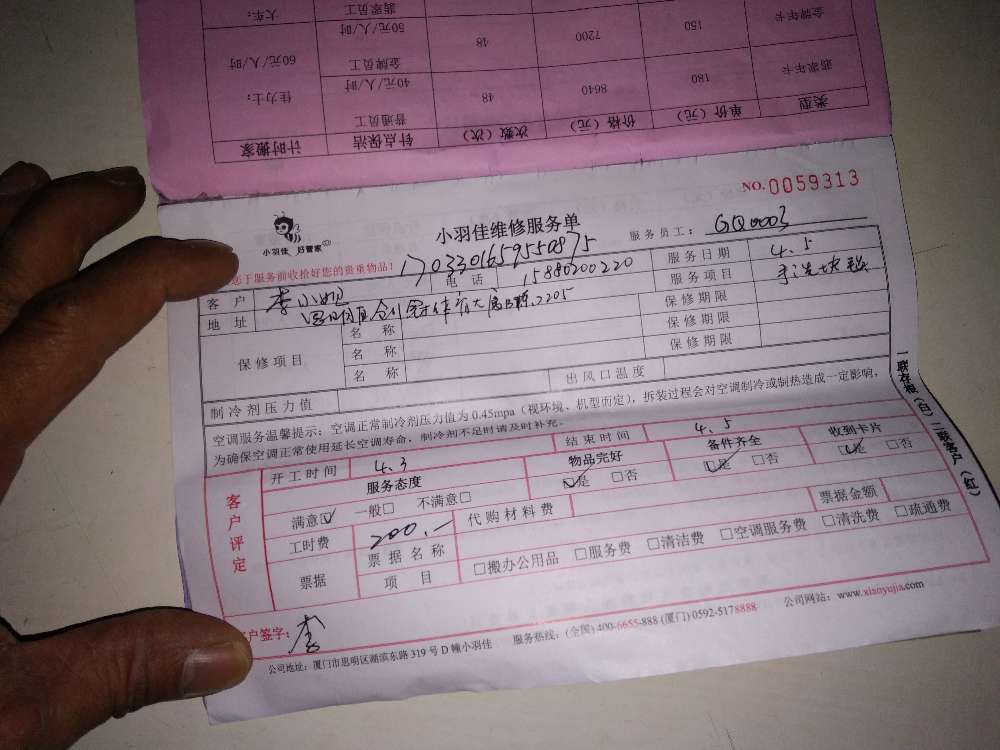 计时搬家 针点保洁 次数（次） 价格（元） 单价（元） 类型
佳力士： 60元/人/时 普通员工 40元/人/时 48 8640 180 翡翠年卡
金牌员工 50元/人/时 48 7200 150 金牌年卡
大车： 翡翠员工
NO.0059313
小羽佳 好管家
小羽佳维修服务单
服务员工： GQ0003
您于服务前收松好您的贵重物品！
1703301659550875
客户 李小姐 电话 15880200220 服务日期 4、5
地址 2205 服务项目
保修项目 名称 保修期限
名称 保修期限
名称 保修期限
制冷剂压力值 出风口温度
空调服务温馨提示：空调正常制冷剂压力值为0.45mpa（视环境、机型而定），拆装过程会对空调制冷或制热造成一定影响，
为确保空调正常使用延长空调寿命，制冷剂不足时请及时补充。
一联存根（白）二联客户（红）
客户评定
开工时间 4、3 结束时间 4、5
服务态度 物品完好 备件齐全 收到卡片
满意□✓ 一般□ 不满意□ □✓是 □否 □✓是 □否 □✓是 □否
工时费 200.— 代购材料费 票据金额
票据 票据名称
项目 □搬办公用品 □服务费 □清洁费 □空调服务费 □清洗费 □疏通费
客户签字： 李
公司地址：厦门市思明区湖滨东路319号D幢小羽佳 服务热线：(全国) 400-6655-888 (厦门) 0592-5178888 公司网站：www.xianyujia.com